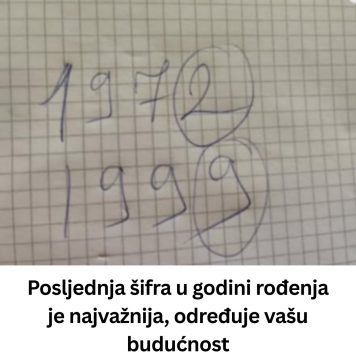 1972
1999
Posljednja šifra u godini rođenja
je najvažnija, određuje vašu
budućnost